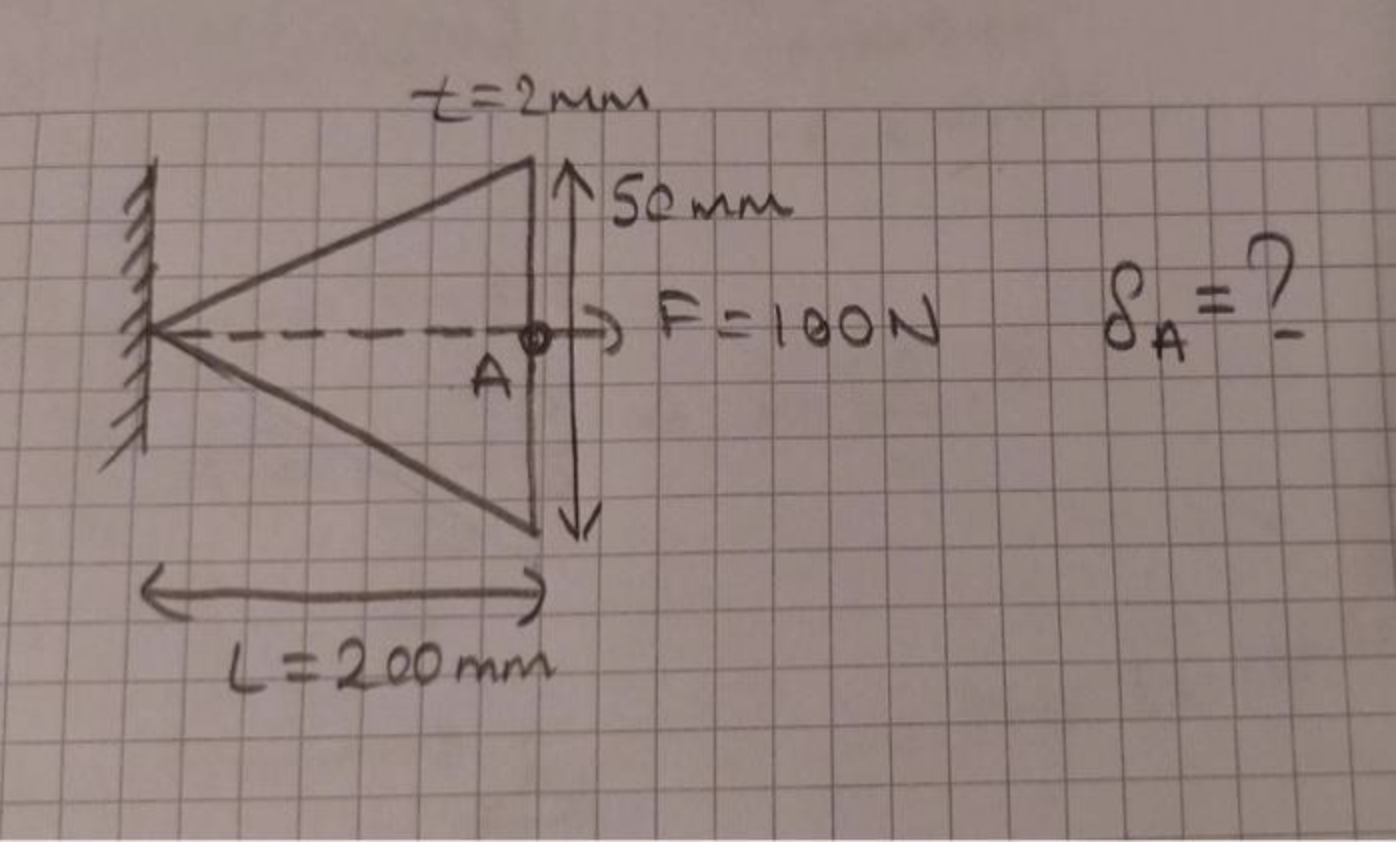 t=2mm
50mm
F=100N
δA=?
A
L=200mm